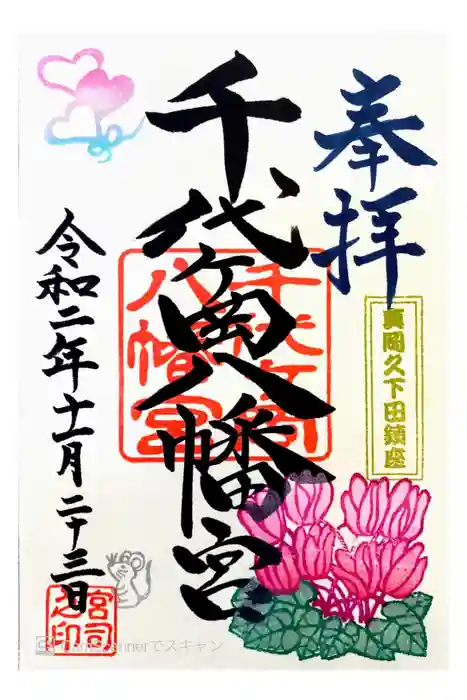 奉拝
真岡久下田鎮座
千代ヶ岡八幡宮
千代ヶ岡
八幡宮
令和二年十一月二十三日
宮司
之印
CamScannerでスキャン